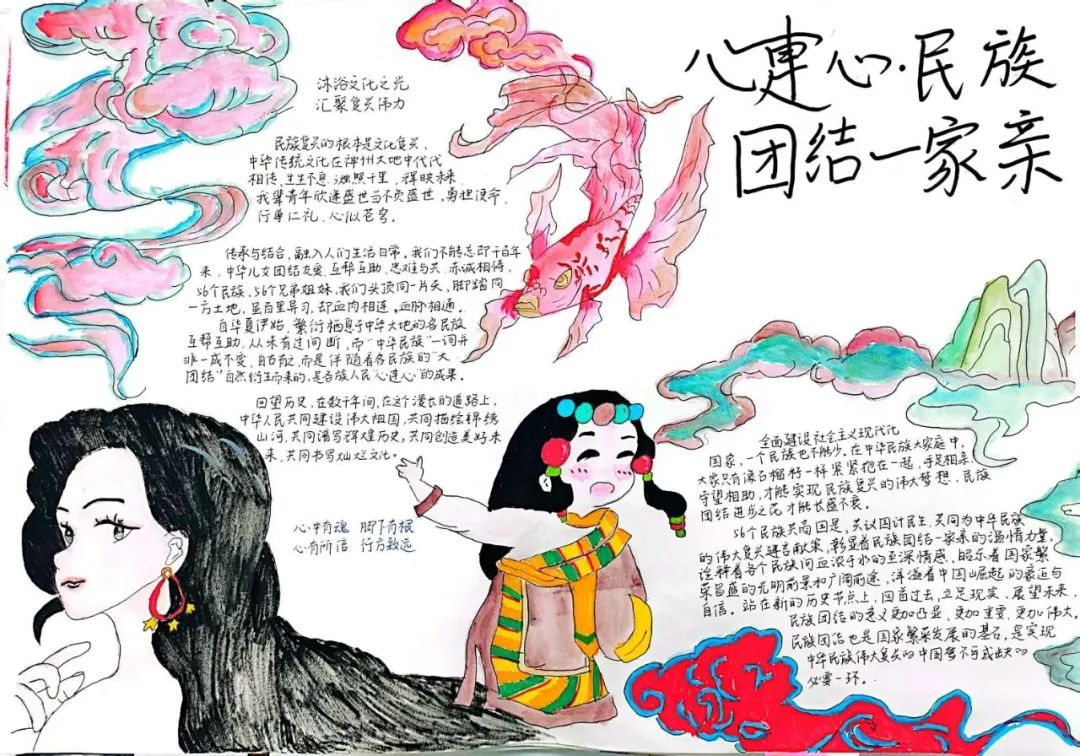 心连心·民族
团结一家亲
沐浴文化之光
汇聚复兴伟力
民族复兴的根本是文化复兴、
中华传统文化在神州大地中代代
相传、生生不息、烛照千里、辉映未来
我辈青年欣逢盛世当不负盛世,勇担使命,
行事仁礼,心似苍穹。
传承与结合,融入人们生活日常,我们不能忘却千百年
来,中华儿女团结友爱、互帮互助、患难与共、赤诚相待,
56个民族、56个兄弟姐妹,我们头顶同一片天,脚踏同
一方土地,虽百里异习,却血肉相连,血脉相通。
自华夏伊始,繁衍栖息于中华大地的各民族
互帮互助,从未有过间断,而“中华民族”一词并
非一成不变,自古有之,而是伴随着各民族的“大
团结”自然衍生而来的,是各族人民“心连心”的成果。
回望历史,在数千年间,在这个漫长的道路上,
中华人民共同建设伟大祖国,共同描绘锦绣
山河,共同谱写辉煌历史,共同创造美好未
来,共同书写灿烂文化。
心中有魂 脚下有根
心有所信 行方致远
全面建设社会主义现代化
国家,一个民族也不能少。在中华民族大家庭中,
大家只有像石榴籽一样紧紧抱在一起,手足相亲、
守望相助,才能实现民族复兴的伟大梦想,民族
团结进步之花才能长盛不衰。
56个民族共商国是,共议国计民生,共同为中华民族
的伟大复兴建言献策,彰显着民族团结一家亲的温情力量,
诠释着各个民族间血浓于水的至深情感,昭示着国家繁
荣昌盛的光明前景和广阔前途,洋溢着中国崛起的豪迈与
自信。站在新的历史节点上,回首过去,立足现实、展望未来,
民族团结的意义更加凸显,更加重要,更加伟大。
民族团结也是国家繁荣发展的基石,是实现
中华民族伟大复兴的中国梦不可或缺的
必要一环。